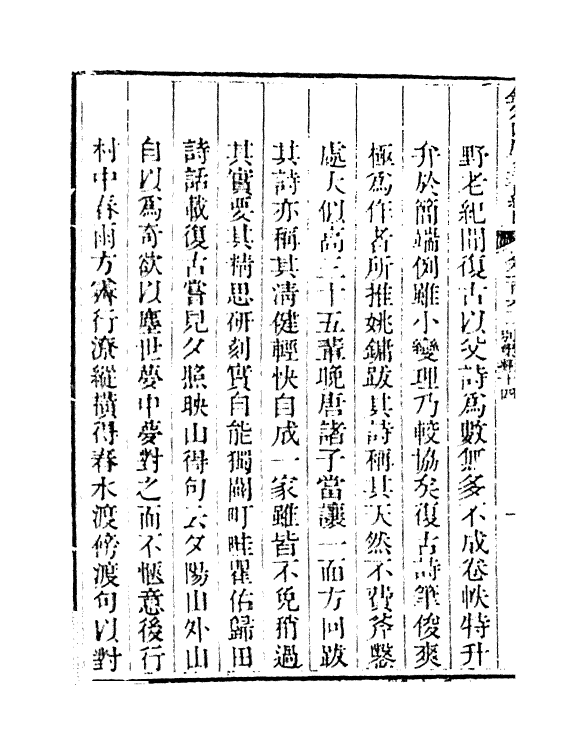 野老紀聞復古以父詩爲數無多不成卷帙特升
弁於簡端例雖小變理乃較協矣復古詩筆俊爽
極爲作者所推姚鏞跋其詩稱其天然不費斧鑿
處大似高三十五輩晚唐諸子當讓一面方回跋
其詩亦稱其清健輕快自成一家雖皆不免稍過
其實要其精思研刻實自能獨闢町畦瞿佑歸田
詩話載復古嘗見夕照映山得句云夕陽山外山
自以爲奇欲以塵世夢中夢對之而不愜意後行
村中春雨方霽行潦縱橫得春水渡傍渡句以對